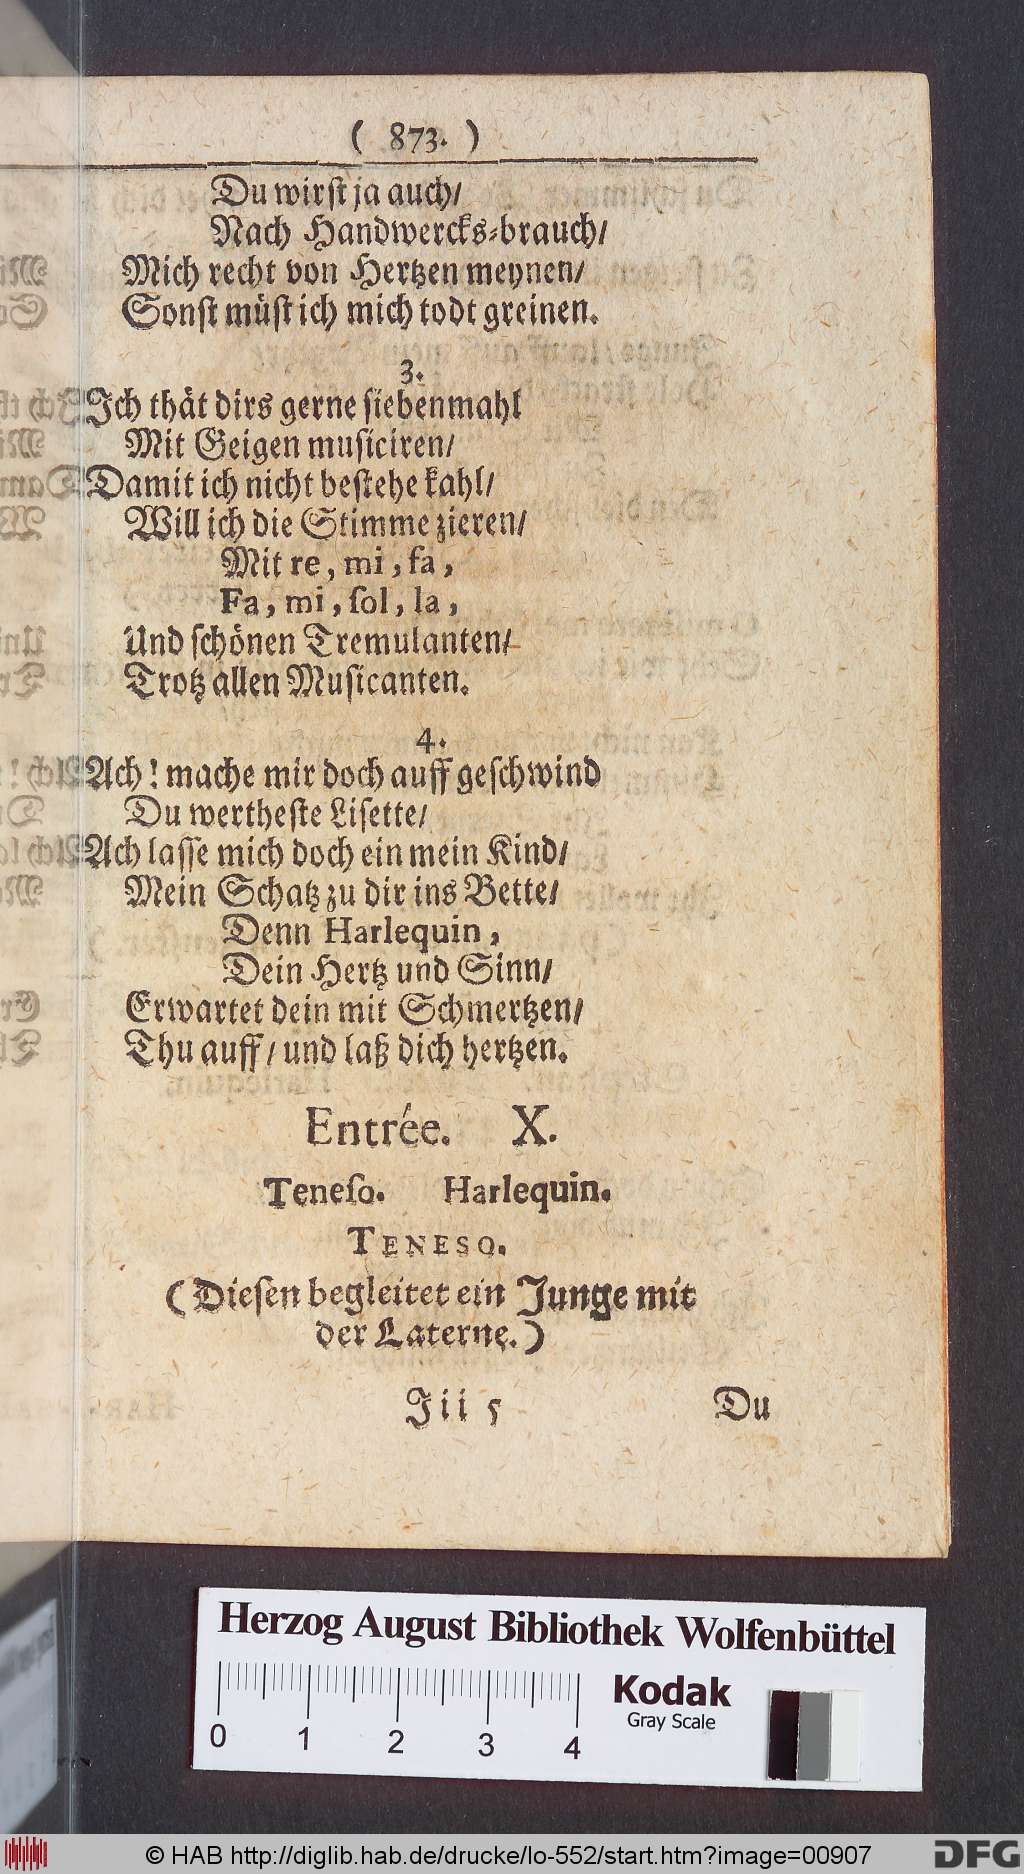 ( 873. )
Du wirſt ja auch/
Nach Handwercks-brauch/
Mich recht von Hertzen meynen/
Sonſt müſt ich mich todt greinen.
3.
Ich thät dirs gerne ſiebenmahl
Mit Geigen muſiciren/
Damit ich nicht beſtehe kahl/
Will ich die Stimme zieren/
Mit re, mi, fa,
Fa, mi, ſol, la,
Und ſchönen Tremulanten/
Trotz allen Muſicanten.
4.
Ach! mache mir doch auff geſchwind
Du wertheſte Liſette/
Ach laſſe mich doch ein mein Kind/
Mein Schatz zu dir ins Bette/
Denn Harlequin,
Dein Hertz und Sinn/
Erwartet dein mit Schmertzen/
Thu auff/ und laß dich hertzen.
Entrée. X.
Teneſo. Harlequin.
TENESO.
(Dieſen begleitet ein Junge mit
der Laterne.)
Iii 5 Du
Herzog August Bibliothek Wolfenbüttel
0 1 2 3 4
Kodak
Gray Scale
© HAB http://diglib.hab.de/drucke/lo-552/start.htm?image=00907
DFG